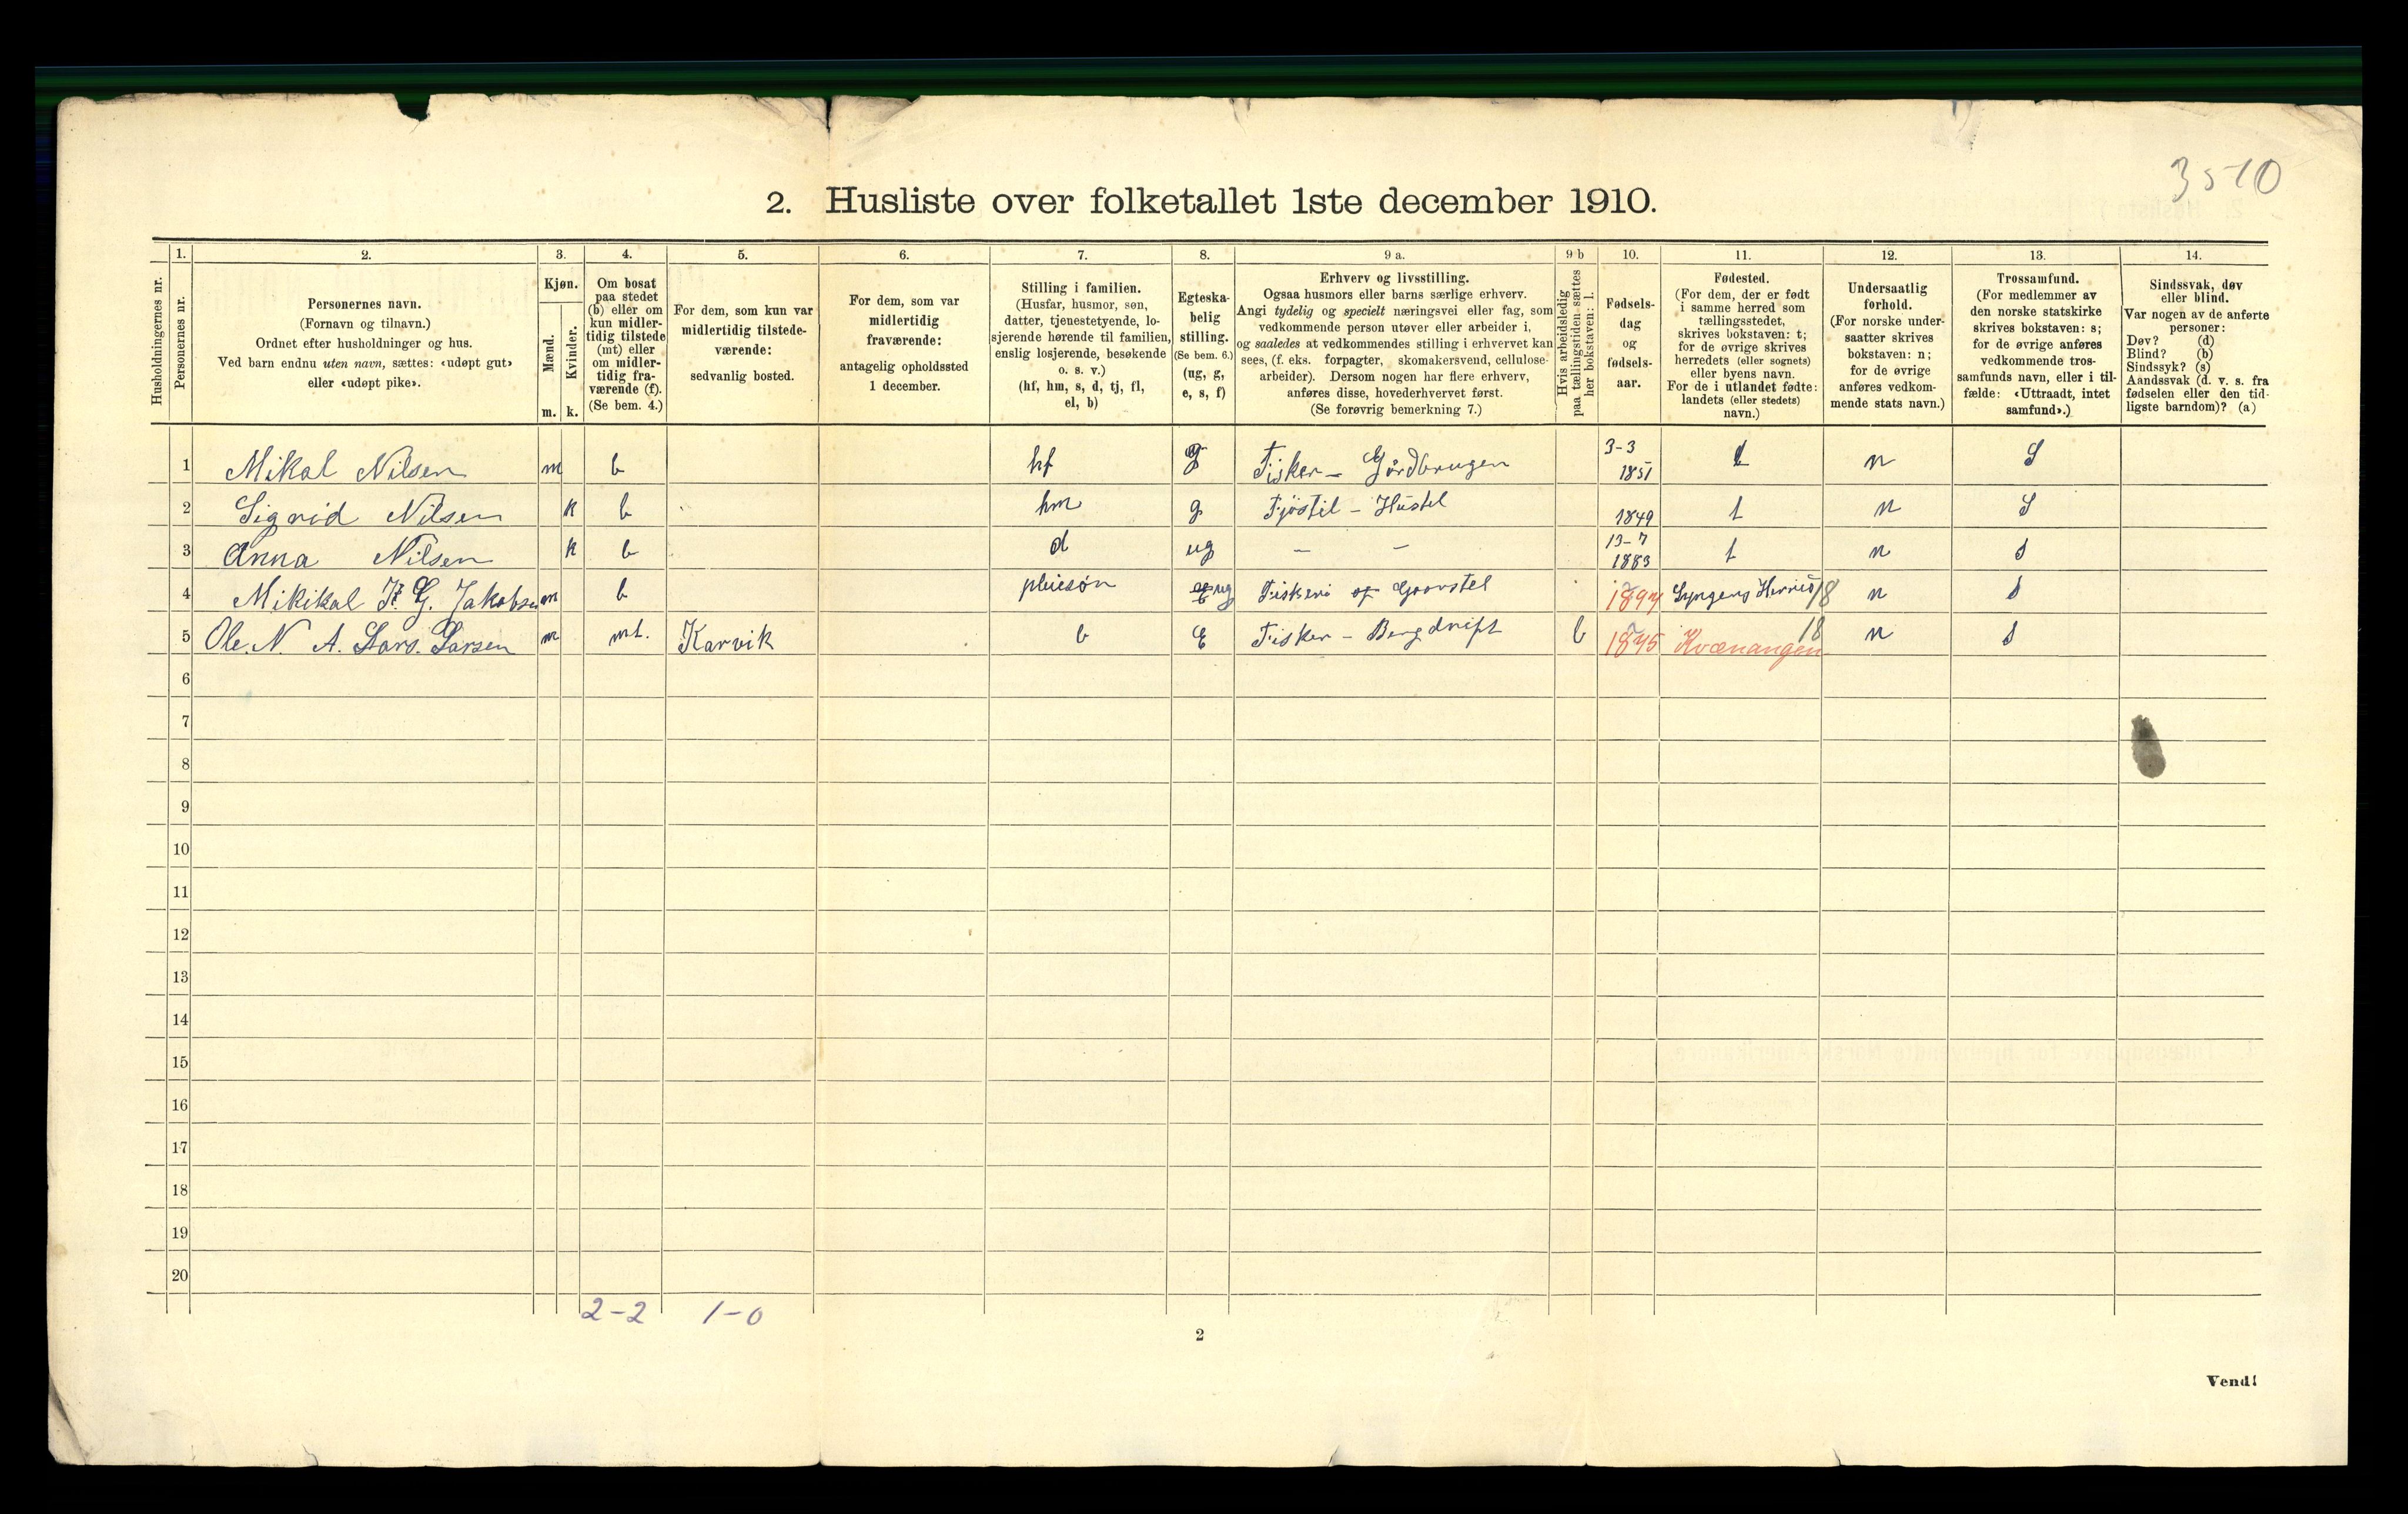 3 5-10
2. Husliste over folketallet 1ste december 1910.
Husholdningernes nr.
1.
Personernes nr.
2.
Personernes navn.
(Fornavn og tilnavn.)
Ordnet efter husholdninger og hus.
Ved barn endnu uten navn, sættes: «udøpt gut»
eller «udøpt pike».
3.
Kjøn.
Mænd.
Kvinder.
m.
k.
4.
Om bosat
paa stedet
(b) eller om
kun midler-
tidig tilstede
(mt) eller
om midler-
tidig fra-
værende (f).
(Se bem. 4.)
5.
For dem, som kun var
midlertidig tilstede-
værende:
sedvanlig bosted.
6.
For dem, som var
midlertidig
fraværende:
antagelig opholdssted
1 december.
7.
Stilling i familien.
(Husfar, husmor, søn,
datter, tjenestetyende, lo-
sjerende hørende til familien,
enslig losjerende, besøkende
o. s. v.)
(hf, hm, s, d, tj, fl,
el, b)
8.
Egteska-
belig
stilling.
(Se bem. 6.)
(ug, g,
e, s, f)
9 a.
Erhverv og livsstilling.
Ogsaa husmors eller barns særlige erhverv.
Angi tydelig og specielt næringsvei eller fag, som
vedkommende person utøver eller arbeider i,
og saaledes at vedkommendes stilling i erhvervet kan
sees, (f. eks. forpagter, skomakersvend, cellulose-
arbeider). Dersom nogen har flere erhverv,
anføres disse, hovederhvervet først.
(Se forøvrig bemerkning 7.)
9 b
Hvis arbeidsledig
paa tællingstiden sættes
her bokstaven: l.
10.
Fødsels-
dag
og
fødsels-
aar.
11.
Fødested.
(For dem, der er født
i samme herred som
tællingsstedet,
skrives bokstaven: t;
for de øvrige skrives
herredets (eller sognets)
eller byens navn.
For de i utlandet fødte:
landets (eller stedets)
navn.)
12.
Undersaatlig
forhold.
(For norske under-
saatter skrives
bokstaven: n;
for de øvrige
anføres vedkom-
mende stats navn.)
13.
Trossamfund.
(For medlemmer av
den norske statskirke
skrives bokstaven: s;
for de øvrige anføres
vedkommende tros-
samfunds navn, eller i til-
fælde: «Uttraadt, intet
samfund».)
14.
Sindssvak, døv
eller blind.
Var nogen av de anførte
personer:
Døv? (d)
Blind? (b)
Sindssyk? (s)
Aandssvak (d. v. s. fra
fødselen eller den tid-
ligste barndom)? (a)
1 Mikal Nilsen m b hf g Fisker - Gårdbrugen 3-3 1851 t n S
2 Sigrid Nilsen k b hm g Fjöstil - Hüstel 1849 t n S
3 Anna Nilsen k b d ug — — 13-7 1883 t n s
4 Mikikal G. Jakobsen m b pleiesøn ug Fiskeri 1897 Lyngens Herred 18 n s
5 Ole. N. A. Lars. Larsen m mt. Karvik b E Fisker - Bergdrift l 1845 Kvænangen 18 n s
6
7
8
9
10
11
12
13
14
15
16
17
18
19
20
2-2 1-0
2
Vend!